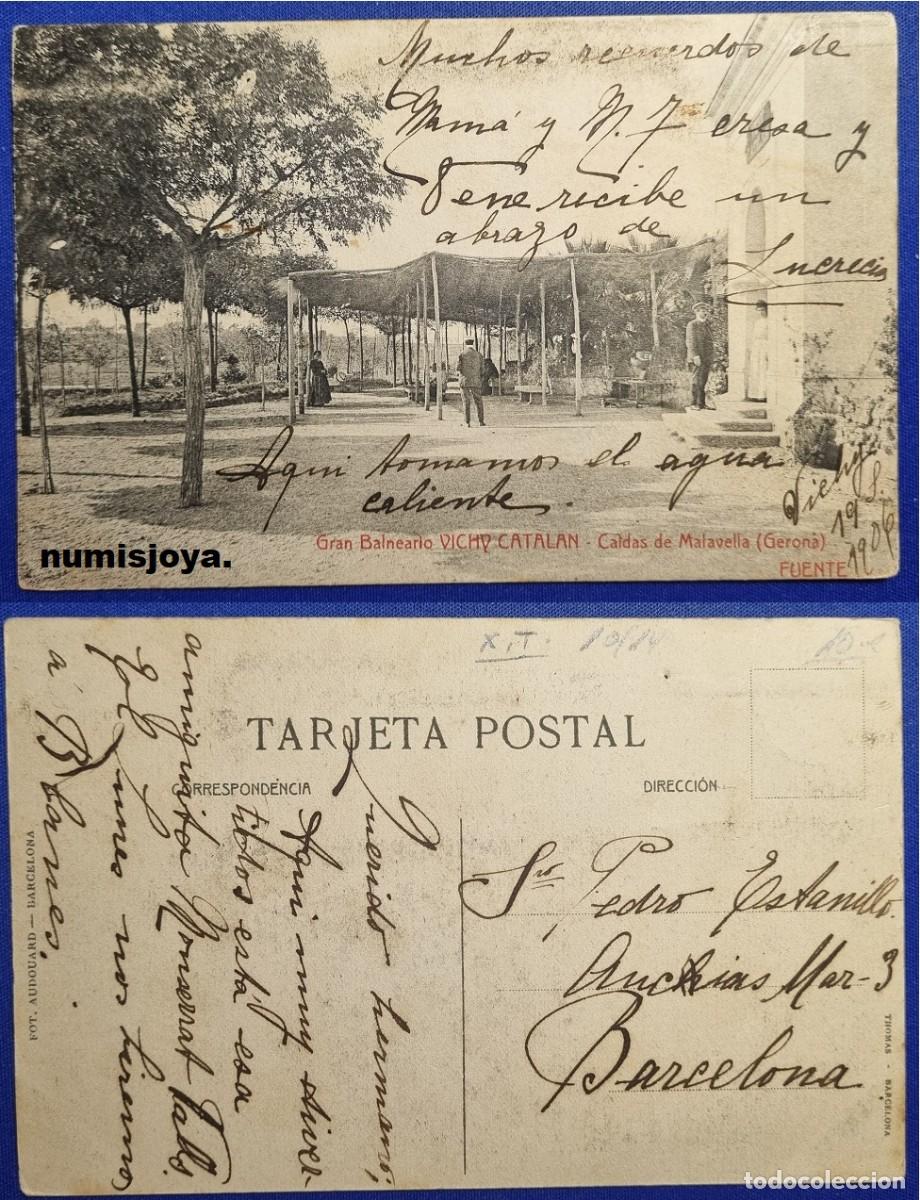 Muchos recuerdos de
Mamá y M. Teresa y
Nene recibe un
abrazo de
Lucrecia
Aqui tomamos el agua
caliente.
Vichy
19 8.
1906
numisjoya.
Gran Balneario VICHY CATALAN - Caldas de Malavella (Gerona)
FUENTE
X.T. 10/14
TARJETA POSTAL
CORRESPONDENCIA
DIRECCIÓN
Querido hermano,
Aqui muy diver-
tidos está esa
amiguita Monserrat Valls.
El lunes nos iremos
a Blanes.
Sr. Pedro Estanillo.
Auckias Mar-3
Barcelona
FOT. AUDOUARD — BARCELONA
THOMAS - BARCELONA
todocoleccion